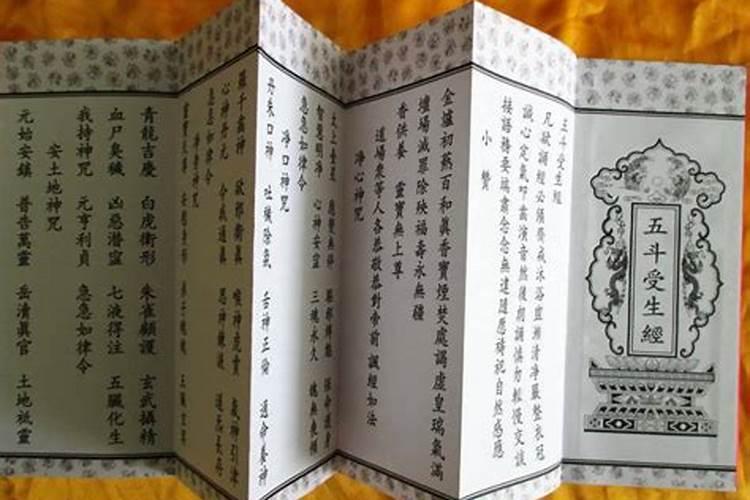 五斗受生經
五斗受生經
凡欲誦經必須齋戒沐浴盥漱清淨嚴整衣冠
誠心定氣叩齒演音然後朗誦慎勿輕慢交談
接語務要端肅念念無違隨應禱祀自然感應
小 贊
金爐初爇百和真香寶煙焚處謁虛皇瑞氣滿
壇場滅罪除殃福壽永無疆
香供養 靈寶無上尊
道場衆等人各恭敬恭對帝前 誦經如法
淨心神咒
太上臺星 應變無停 驅邪縛魅 保命護身
智慧明淨 心神安寧 三魂永久 魄無喪傾
急急如律令
淨口神咒
丹朱口神 吐穢除氛 舌神正倫 通命養神
羅千齒神 卻邪衛真 喉神虎賁 氣神引津
心神丹元 令我通真 思神鍊液 道炁長存
急急如律令
淨身神咒
靈寶天尊 安慰身形 弟子魂魄 五臟玄冥
青龍吉慶 白虎衛形 朱雀顧護 玄武攝精
血尸臭穢 凶惡潛盪 七液得注 五臟化生
我持神咒 元亨利貞 急急如律令
安土地神咒
元始安鎮 普告萬靈 岳瀆真官 土地祇靈